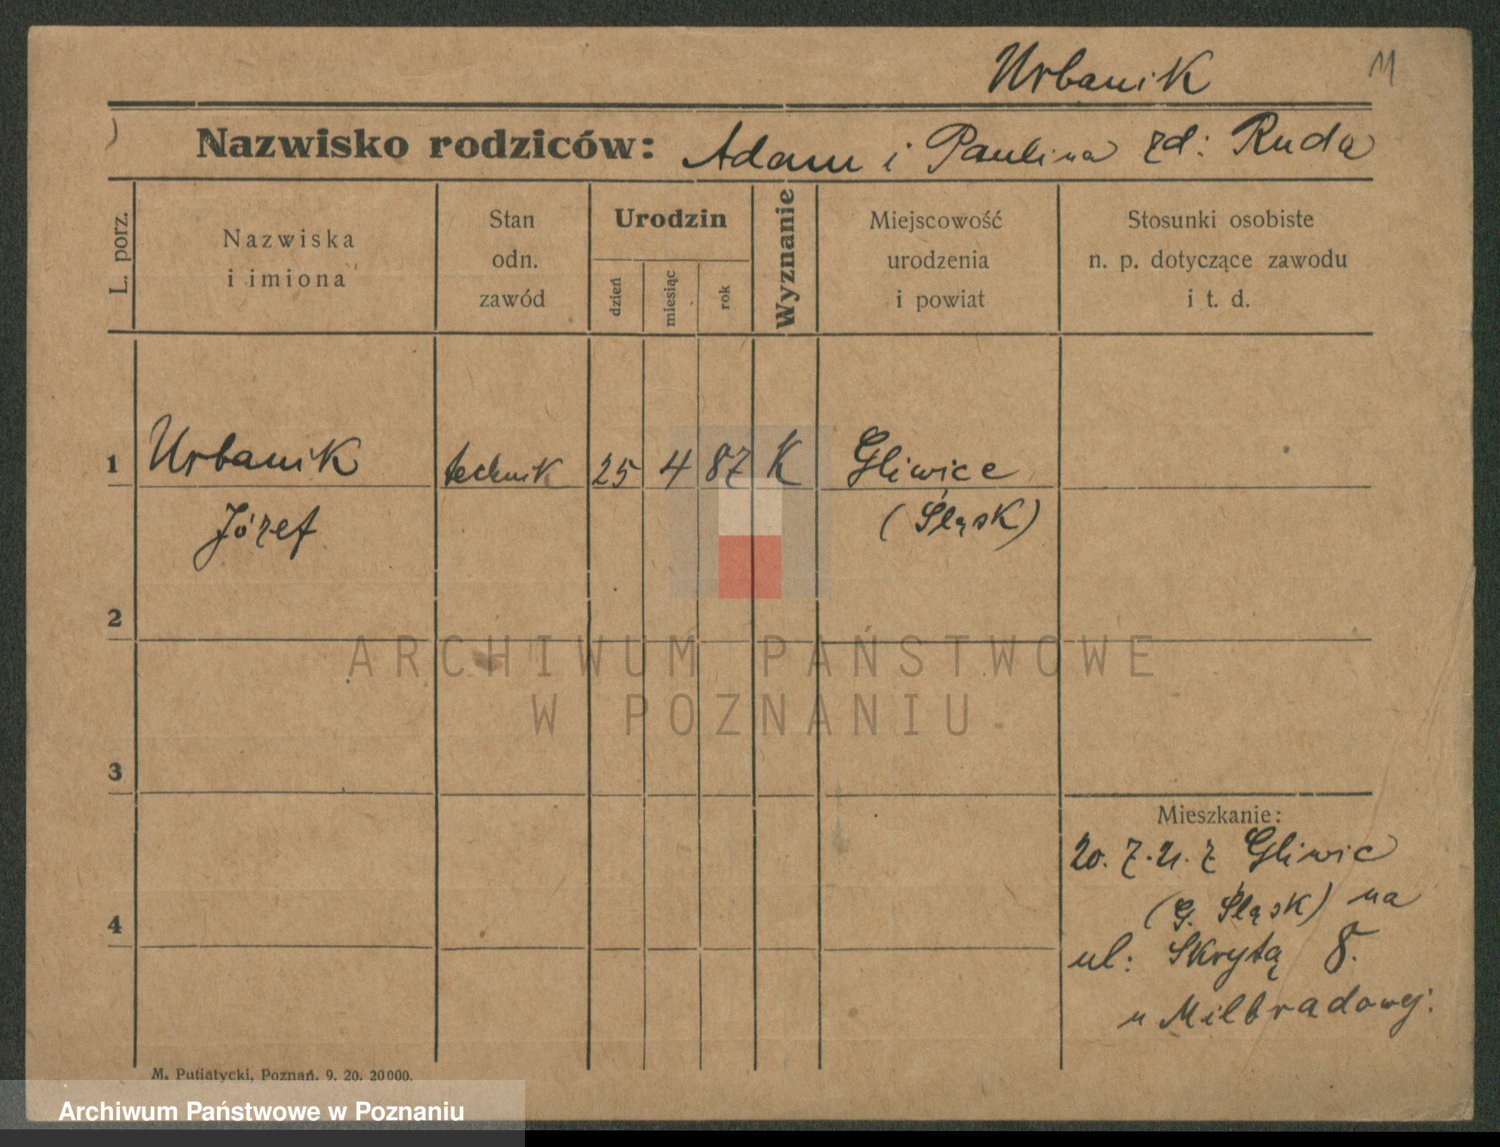 Urbanik
11
Nazwisko rodziców: Adam i Paulina zd: Ruda
L. porz.
Nazwiska
i imiona
Stan
odn.
zawód
Urodzin
dzień
miesiąc
rok
Wyznanie
Miejscowość
urodzenia
i powiat
Stosunki osobiste
n. p. dotyczące zawodu
i t. d.
1 Urbanik technik 25 4 87 K Gliwice
Józef (Śląsk)
2
ARCHIWUM PAŃSTWOWE
W POZNANIU
3
Mieszkanie:
20. 7. 21. z Gliwic
(G. Śląsk) na
4
ul: Skrytą 8.
u Milbradowej:
M. Putiatycki, Poznań. 9. 20. 20000.
Archiwum Państwowe w Poznaniu